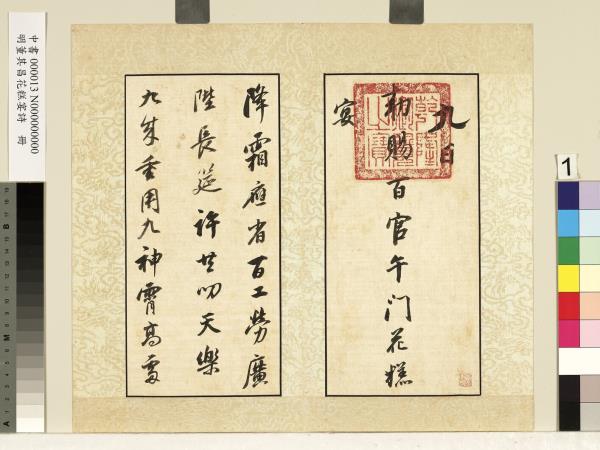 九日
勅賜百官午门花糕
宴
乾隆御覽之寶
降霜應省百工勞廣
陛長筵許共叨天樂
九成重用九神霄高處
中書 000013 N000000000
明董其昌花糕宴詩 冊
1